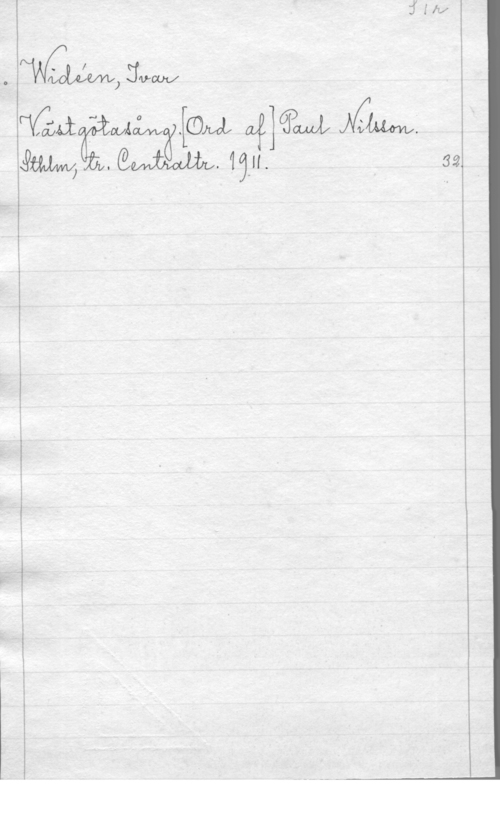 Widéen, Ivar
Västgötasång. [Ord af] Paul Nilsson.
Sthlm, tr. Centraltr. 1911. 32.